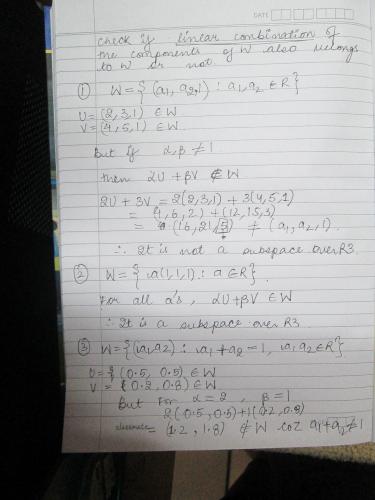 DATE
check if linear combination of
the components of W also belongs
to W or not.
① W = { (a₁, a₂, 1) : a₁, a₂ ∈ R }
U = (2, 3, 1) ∈ W
V = (4, 5, 1) ∈ W.
But if α, β ≠ 1
then αU + βV ∉ W
2U + 3V = 2(2,3,1) + 3(4,5,1)
= (4, 6, 2) + (12, 15, 3)
= (16, 21, 5) ≠ (a₁, a₂, 1)
∴ It is not a subspace over R3.
② W = { a(1,1,1) : a ∈ R }
For all a's, αU + βV ∈ W
∴ It is a subspace over R3.
③ W = { (a₁, a₂) : a₁ + a₂ = 1, a₁, a₂ ∈ R }
U = (0.5, 0.5) ∈ W
V = (0.2, 0.8) ∈ W
But for α = 2, β = 1
2(0.5, 0.5) + 1(0.2, 0.8)
classmate = (1.2, 1.8) ∉ W coz a₁ + a₂ ≠ 1